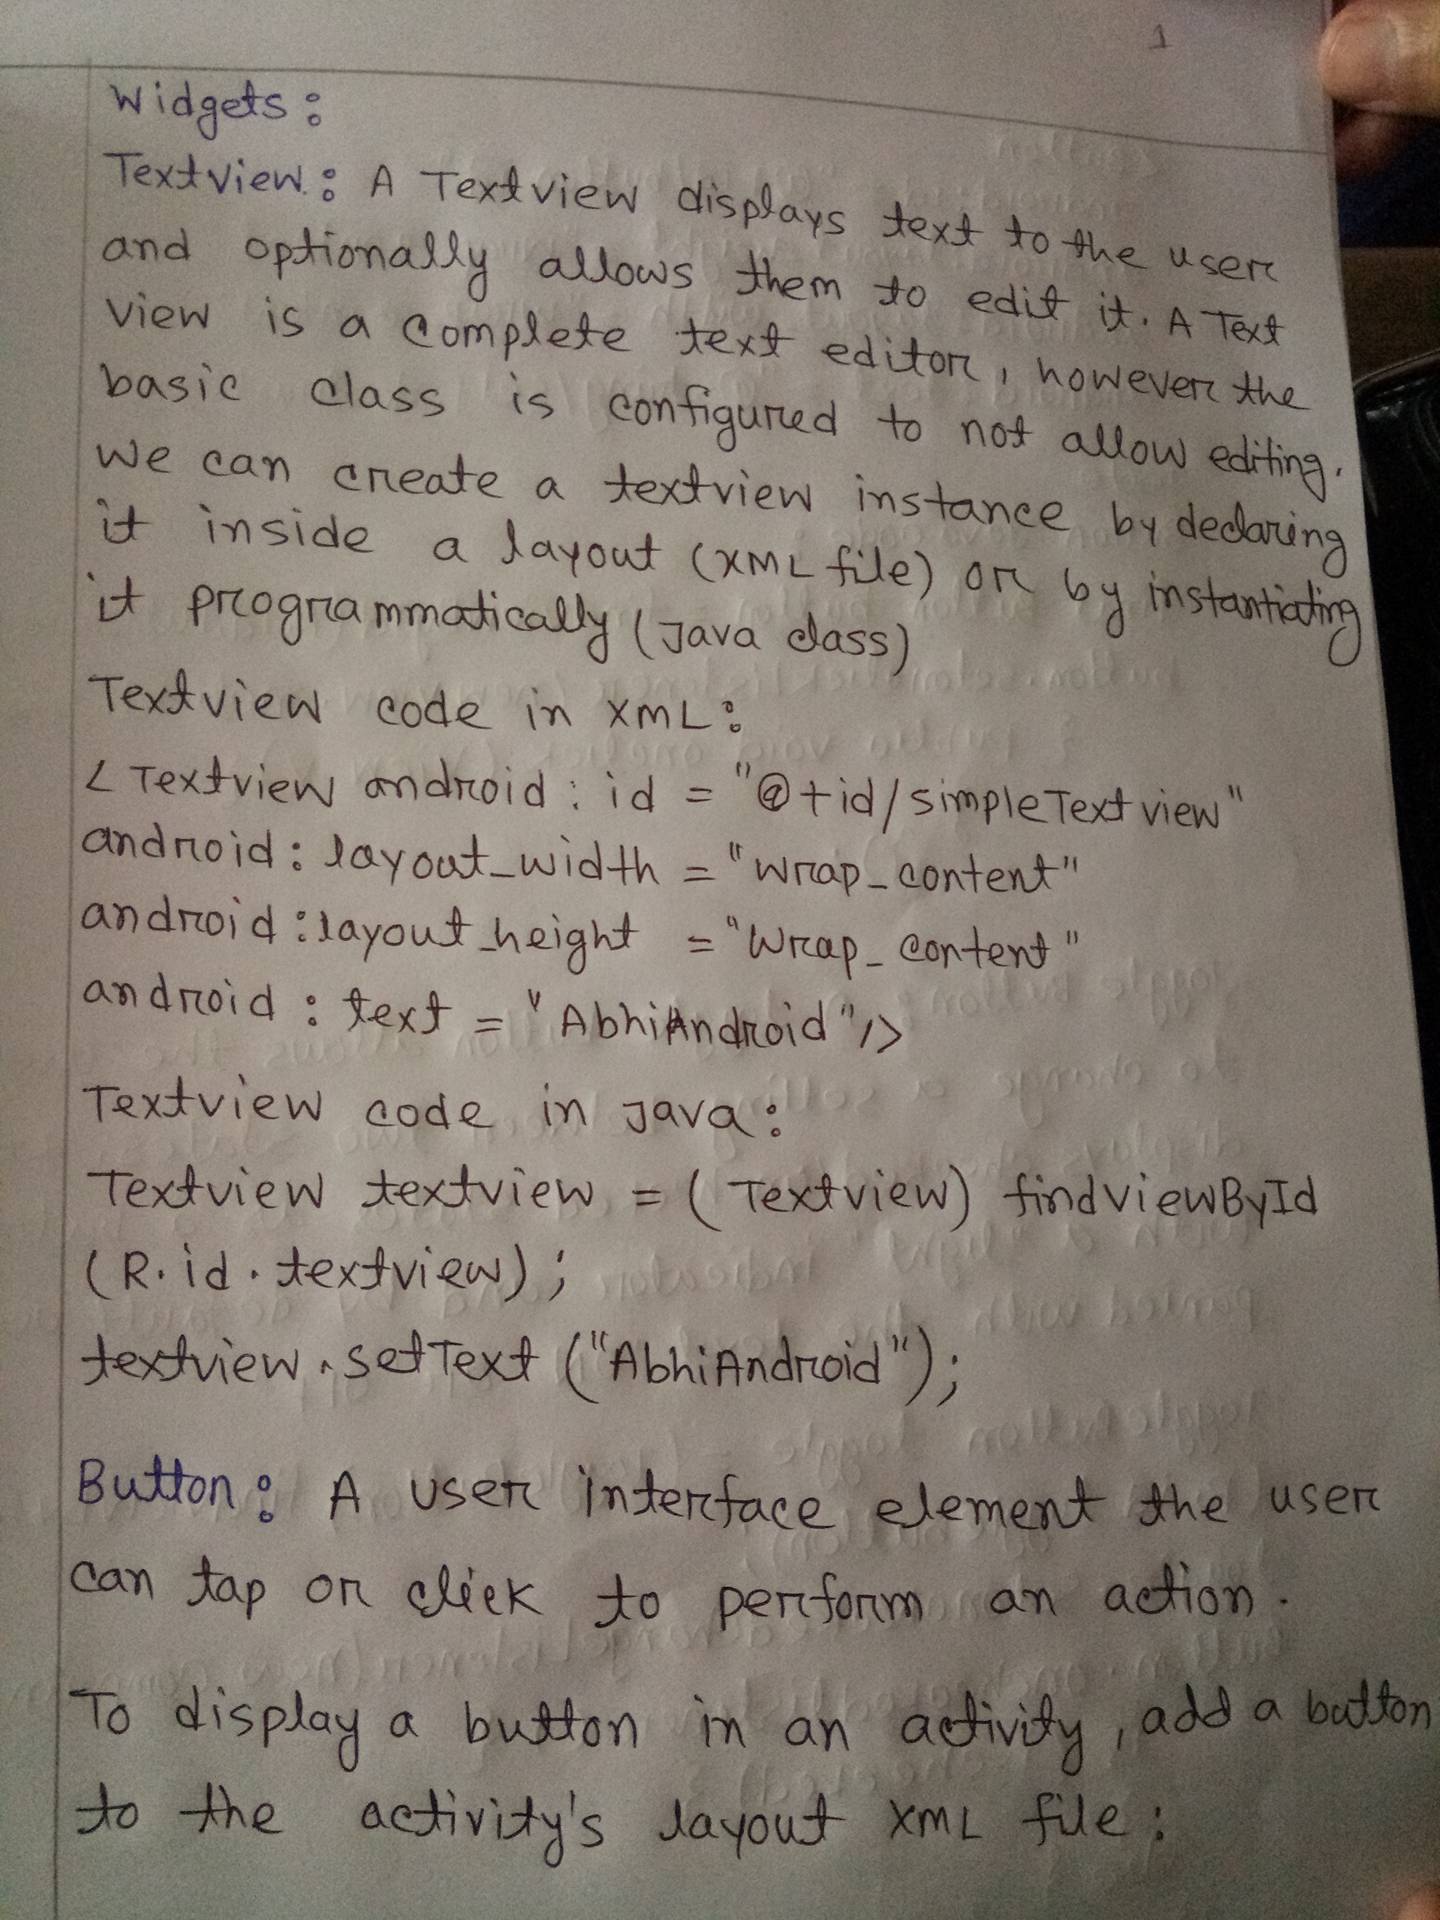 1
Widgets:
Textview: A Textview displays text to the user
and optionally allows them to edit it. A Text
view is a complete text editor, however the
basic class is configured to not allow editing.
we can create a textview instance by declaring
it inside a layout (XML file) or by instantiating
it programmatically (Java class)
Textview code in XML:
<Textview android: id = "@+id/simpleTextview"
android: layout_width = "wrap_content"
android: layout_height = "wrap_content"
android: text = "AbhiAndroid"/>
Textview code in Java:
Textview textview = (Textview) findviewById
(R.id.textview);
textview.setText ("AbhiAndroid");
Button: A user interface element the user
can tap or click to perform an action.
To display a button in an activity, add a button
to the activity's layout XML file: